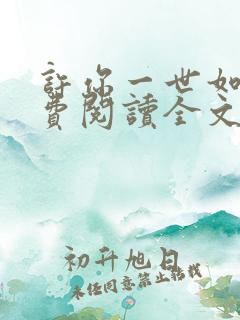 許你一世如
費閱讀全文
初升旭日
未經同意禁止轉載